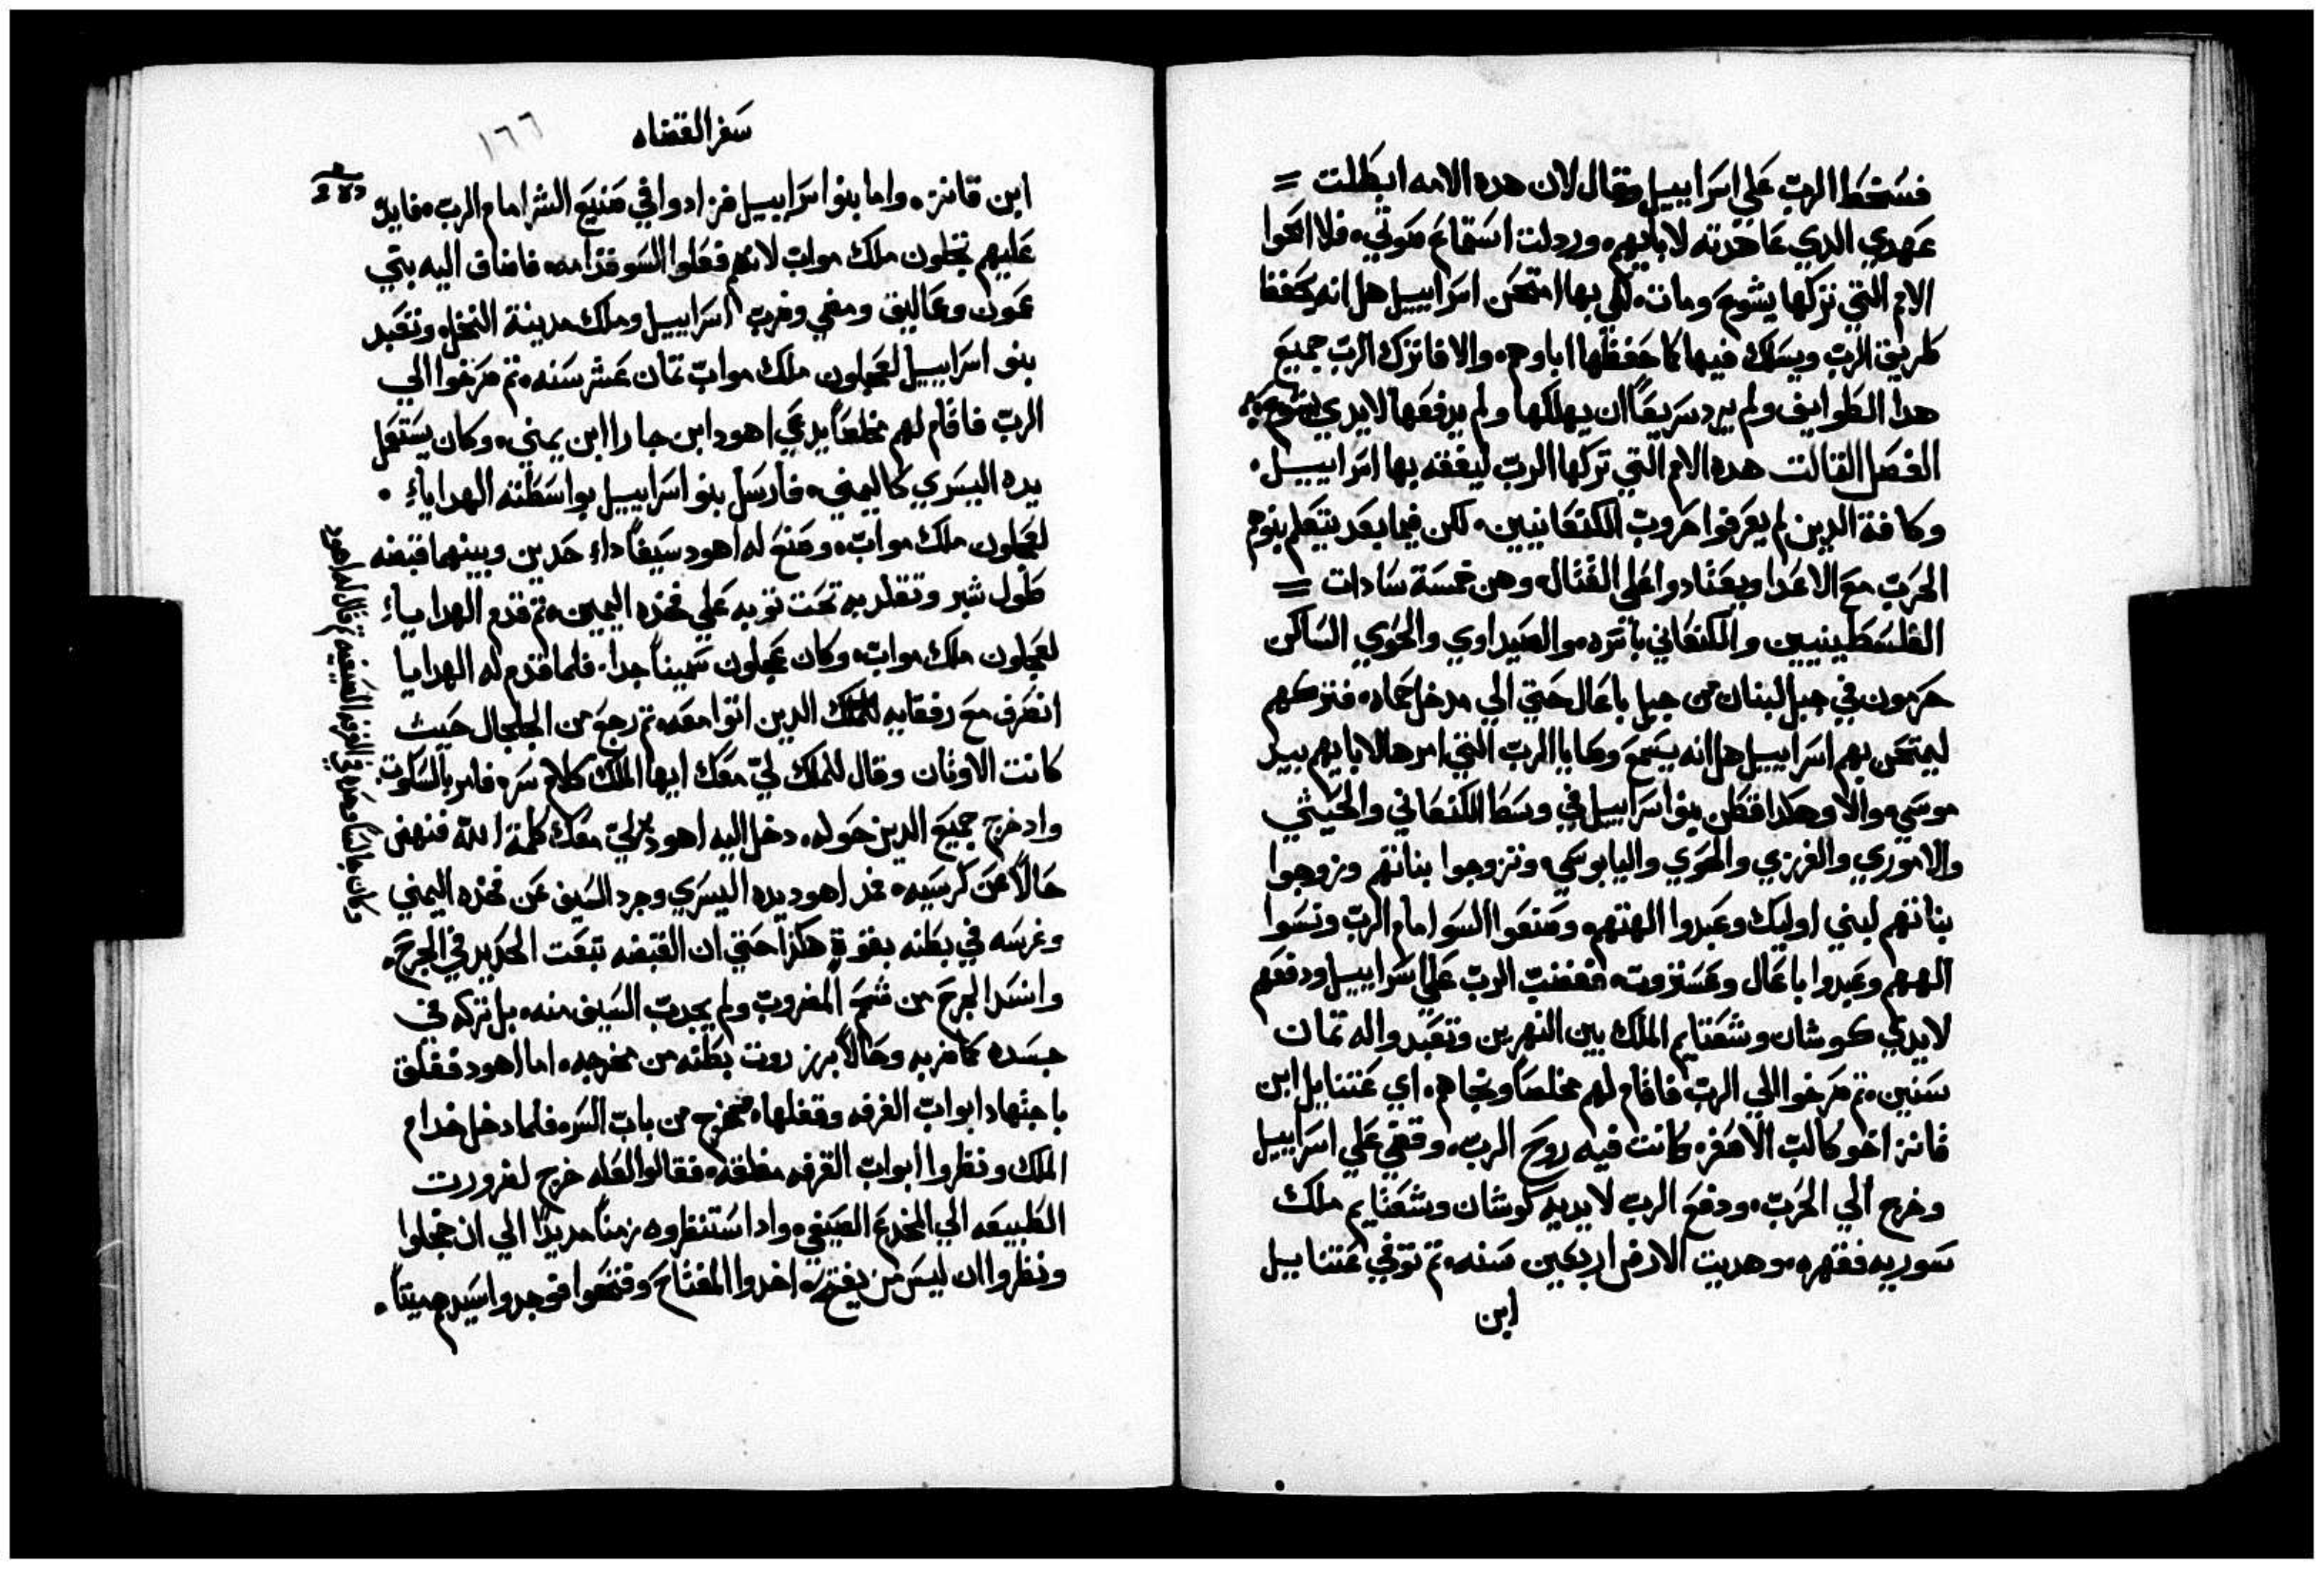 فسخط الرب علي اسراييل وقال لان هده الامه ابطلت =
عهدي الدي عاهدته لابايهم. وردلت استماع صوتي. فلا امحوا
الامم التي تركها يشوع ومات. لكي بها امتحن اسراييل هل انه يحفظ
طريق الرب ويسلك فيها كما حفظها اباوهم. والا فاترك الرب جميع
هدا الطوايف ولم يرد سريعاً ان يهلكها ولم يدفعها لايدي يشوع
الفصل التالت هده الامم التي تركها الرب ليفقه بها اسراييل.
وكافة الدين لم يعرفوا حروب الكنعانيين. لكن فيما بعد يتعلم بنوهم
الحرب مع الاعدا ويعتادوا علي القتال. وهن خمسة سادات =
الفلسطينيين والكنعاني باسره. والصيداوي والحوي الساكن
حرمون في جبل لبنان من جبل باعال حتي الي مدخل حماه. فتركهم
ليمتحن بهم اسراييل هل انه يسمع وصايا الرب التي امرها لابايهم بيد
موسي. والا وهكدا فقطن بنو اسراييل في وسط الكنعاني والحيثي
والاموري والفرزي والحوي واليابوسي. وتزوجوا بناتهم وزوجوا
بناتهم لبني اوليك وعبدوا الهتهم. وصنعوا السو امام الرب ونسوا
الههم وعبدوا باعال وعستروت. فغضب الرب علي اسراييل ودفعهم
لايدي كوشان وشعتايم الملك بين النهرين وتعبدوا له تمان
سنين. تم صرخوا الي الرب فاقام لهم مخلصاً ونجاهم. اي عتنايل ابن
قانز اخو كالب الاصغر. كانت فيه روح الرب. وقضي علي اسراييل
وخرج الي الحرب. ودفع الرب لايديه كوشان وشعتايم ملك
سوريه فقهره. وهديت الارض اربعين سنه. تم توفي عتناييل
ابن
سفر القضاه
١٦٦
ابن قانز. واما بنو اسراييل فزادوا في صنيع الشر امام الرب. فايد
عليهم عجلون ملك مواب لانهم فعلوا السو قدامه. فاضاف اليه بني
عمون وعماليق ومضي وضرب اسراييل وملك مدينة النخل. وتعبد
بنو اسراييل لعجلون ملك مواب تمان عشر سنه. تم صرخوا الي
الرب فاقام لهم مخلصاً يدعي اهود ابن جارا ابن يمني. وكان يستعمل
يده اليسري كاليمني. فارسل بنو اسراييل بواسطته الهداياء.
لعجلون ملك مواب. وصنع له اهود سيفاً داء حدين وبينهما قبضه
طول شبر وتقلد به تحت توبه علي فخده اليمين. تم قدم الهداياء
لعجلون ملك مواب. وكان عجلون سميناً جدا. فلما قدم له الهدايا
انصرف مع رفقايه الدين اتوا معه. تم رجع من الجلجال حيث
كانت الاوثان وقال للملك لي معك ايها الملك كلام سر. فامر بالسكوت.
وادخرج جميع الدين حوله. دخل اليه اهود لي معك كلمة الله فنهض
حالاً عن كرسيه. فمد اهود يده اليسري وجرد السيف عن فخده اليمني
وغرسه في بطنه بقوة هكدا حتي ان القبضه تبعت الحديد في الجرح.
وانسد الجرح من شحم المضروب ولم يجدب السيف منه. بل تركه في
جسده كما ضربه وحالاً برز روت بطنه من مخرجه. اما اهود فغلق
باجتهاد ابواب الغرفه وقفلها. فخرج من باب السر. فلما دخل خدام
الملك ونظروا ابواب الغرفه مغلقه. فقالوا لعله خرج لضرورت
الطبيعه الي المخدع الصيفي. وادا استنظروه زمناً مديداً الي ان خجلوا
ونظروا ان ليس من يفتح. اخدوا المفتاح وفتحوا فوجدوا سيدهم ميتاً.
وكان جالساً وحده في الغرفه الصيفيه تم قال له اهود